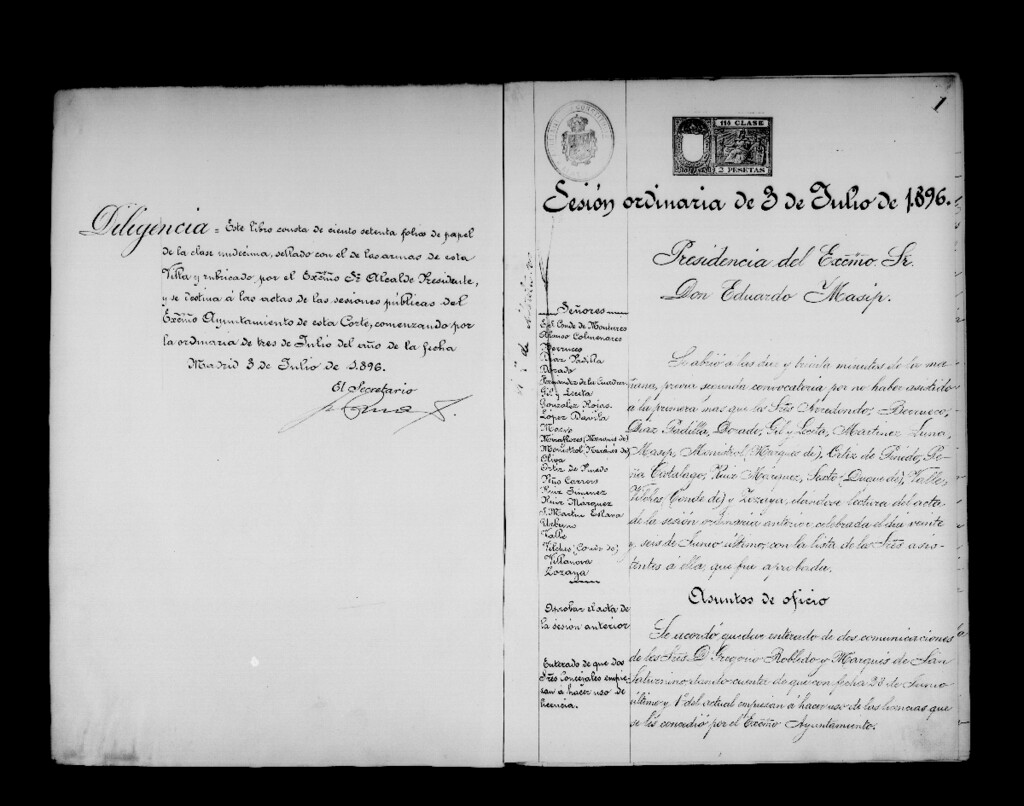 Diligencia = Este libro consta de ciento setenta folios de papel
de la clase undécima, sellado con el de las armas de esta
Villa y rubricado por el Excmo Sr Alcalde Presidente,
y se destina á las actas de las sesiones públicas del
Excmo Ayuntamiento de esta Corte, comenzando por
la ordinaria de tres de Julio del año de la fecha
Madrid 3 de Julio de 1896.
El Secretario
1
11ª CLASE
2 PESETAS
Sesión ordinaria de 3 de Julio de 1896.
Presidencia del Excmo. Sr.
Don Eduardo Masip.
Señores
Conde de Montarco
Alfonso Colmenares
Berrueco
Díaz Padilla
Dorado
Fernández de la Cuadra
Gil y Leceta
González Rojas
López Dávila
Miraflores (Marqués de)
Monistrol (Marqués de)
Oliva
Ortiz de Pinedo
Niño Carrero
Ruiz Jimenez
Ruiz Márquez
S. Martín Eslava
Urbano
Valle
Vilches (Conde de)
Villanova
Zozaya
Se abrió a las diez y treinta minutos de la ma-
ñana, previa segunda convocatoria por no haber asistido
á la primera mas que los Sres Arredondo, Berrueco,
Díaz Padilla, Dorado, Gil y Leceta, Martínez Luna,
Masip, Monistrol (Marqués de), Ortiz de Pinedo,
Ruiz Márquez, Sexto (Duque de), Valle,
Vilches (Conde de) y Zozaya, dándose lectura del acta
de la sesión ordinaria anterior celebrada el día veinte
y seis de Junio último, con la lista de los Sres asis-
tentes á ella, que fue aprobada.
Aprobar el acta de
la sesión anterior
Asuntos de oficio
Enterado de que dos
Sres Concejales empie-
zan á hacer uso de
licencia.
Se acordó quedar enterado de dos comunicaciones
de los Sres. D Gregorio Robledo y Marqués de San
Saturnino dando cuenta de que con fecha 28 de Junio
último y 1º del actual empiezan á hacer uso de las licencias que
se les concedió por el Excmo Ayuntamiento.